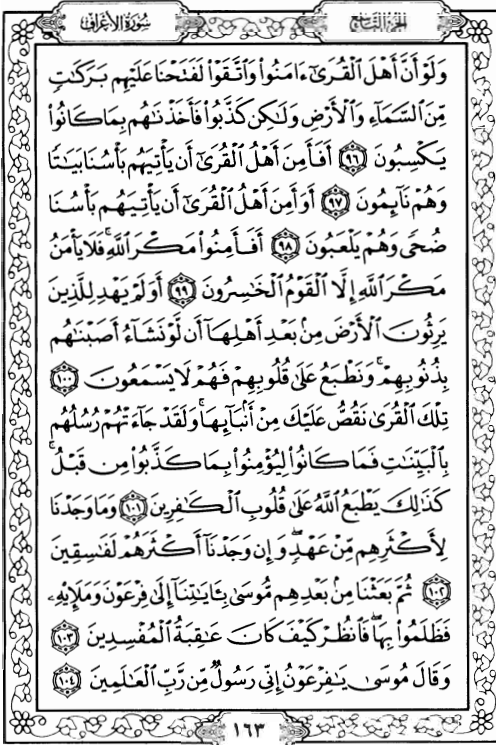 سُورَةُ الأَعْرَافِ الجُزْءُ التَّاسِعُ
وَلَوْ أَنَّ أَهْلَ ٱلْقُرَىٰٓ ءَامَنُوا۟ وَٱتَّقَوْا۟ لَفَتَحْنَا عَلَيْهِم بَرَكَٰتٍ
مِّنَ ٱلسَّمَآءِ وَٱلْأَرْضِ وَلَٰكِن كَذَّبُوا۟ فَأَخَذْنَٰهُم بِمَا كَانُوا۟
يَكْسِبُونَ ٩٦ أَفَأَمِنَ أَهْلُ ٱلْقُرَىٰٓ أَن يَأْتِيَهُم بَأْسُنَا بَيَٰتًا
وَهُمْ نَآئِمُونَ ٩٧ أَوَأَمِنَ أَهْلُ ٱلْقُرَىٰٓ أَن يَأْتِيَهُم بَأْسُنَا
ضُحًى وَهُمْ يَلْعَبُونَ ٩٨ أَفَأَمِنُوا۟ مَكْرَ ٱللَّهِ ۚ فَلَا يَأْمَنُ
مَكْرَ ٱللَّهِ إِلَّا ٱلْقَوْمُ ٱلْخَٰسِرُونَ ٩٩ أَوَلَمْ يَهْدِ لِلَّذِينَ
يَرِثُونَ ٱلْأَرْضَ مِنۢ بَعْدِ أَهْلِهَآ أَن لَّوْ نَشَآءُ أَصَبْنَٰهُم
بِذُنُوبِهِمْ ۚ وَنَطْبَعُ عَلَىٰ قُلُوبِهِمْ فَهُمْ لَا يَسْمَعُونَ ١٠٠
تِلْكَ ٱلْقُرَىٰ نَقُصُّ عَلَيْكَ مِنْ أَنۢبَآئِهَا ۚ وَلَقَدْ جَآءَتْهُمْ رُسُلُهُم
بِٱلْبَيِّنَٰتِ فَمَا كَانُوا۟ لِيُؤْمِنُوا۟ بِمَا كَذَّبُوا۟ مِن قَبْلُ ۚ
كَذَٰلِكَ يَطْبَعُ ٱللَّهُ عَلَىٰ قُلُوبِ ٱلْكَٰفِرِينَ ١٠١ وَمَا وَجَدْنَا
لِأَكْثَرِهِم مِّنْ عَهْدٍ ۖ وَإِن وَجَدْنَآ أَكْثَرَهُمْ لَفَٰسِقِينَ
١٠٢ ثُمَّ بَعَثْنَا مِنۢ بَعْدِهِم مُّوسَىٰ بِـَٔايَٰتِنَآ إِلَىٰ فِرْعَوْنَ وَمَلَإِي۟هِۦ
فَظَلَمُوا۟ بِهَا ۖ فَٱنظُرْ كَيْفَ كَانَ عَٰقِبَةُ ٱلْمُفْسِدِينَ ١٠٣
وَقَالَ مُوسَىٰ يَٰفِرْعَوْنُ إِنِّى رَسُولٌ مِّن رَّبِّ ٱلْعَٰلَمِينَ ١٠٤
١٦٣